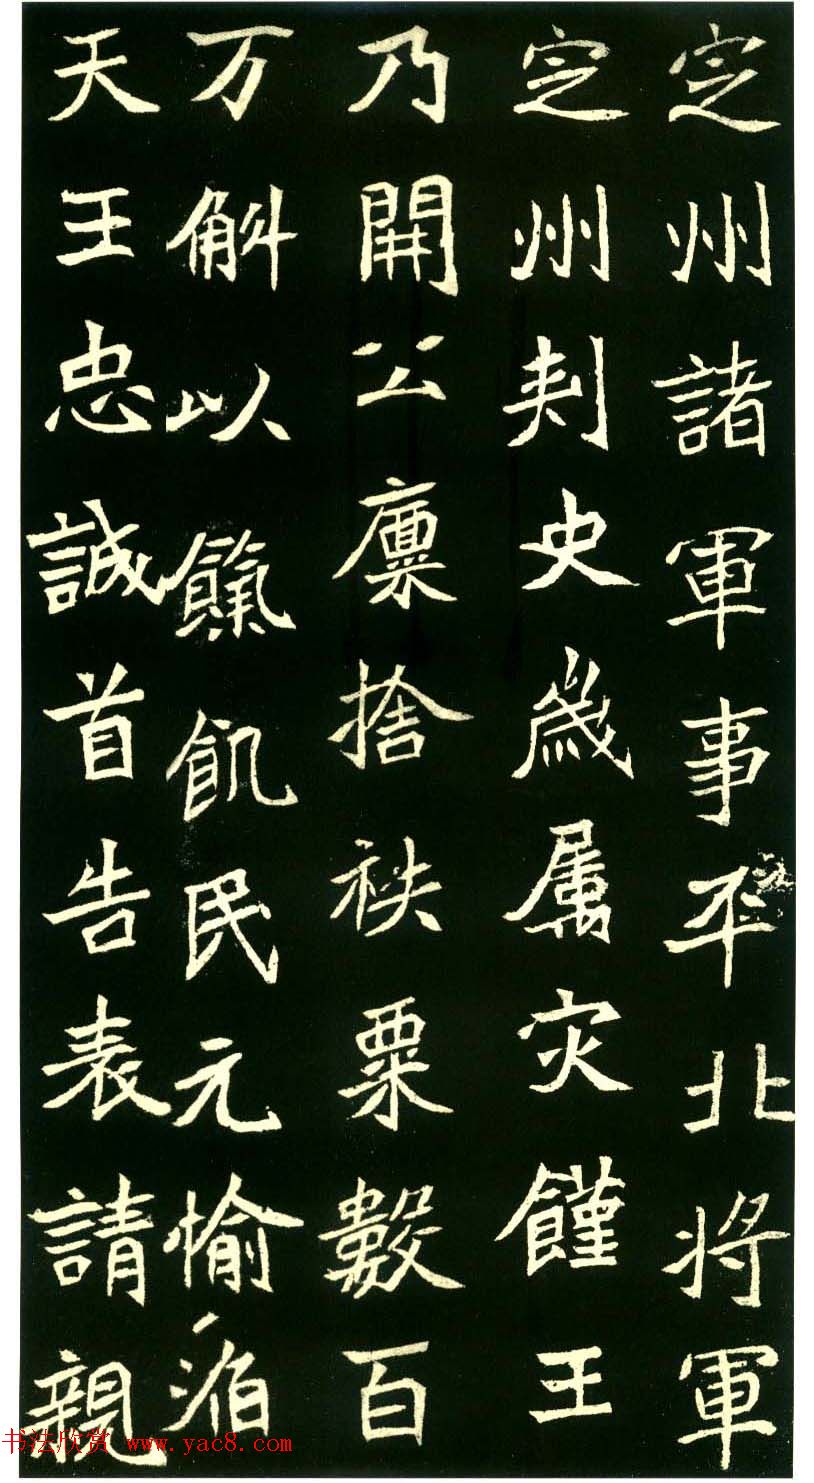 定州諸軍事平北將軍
定州刾史歲属灾饉王
乃開公廩捨秩粟數百
万斛以餼飢民元愉滔
天王忠誠首告表請親
书法欣赏 www.yac8.com